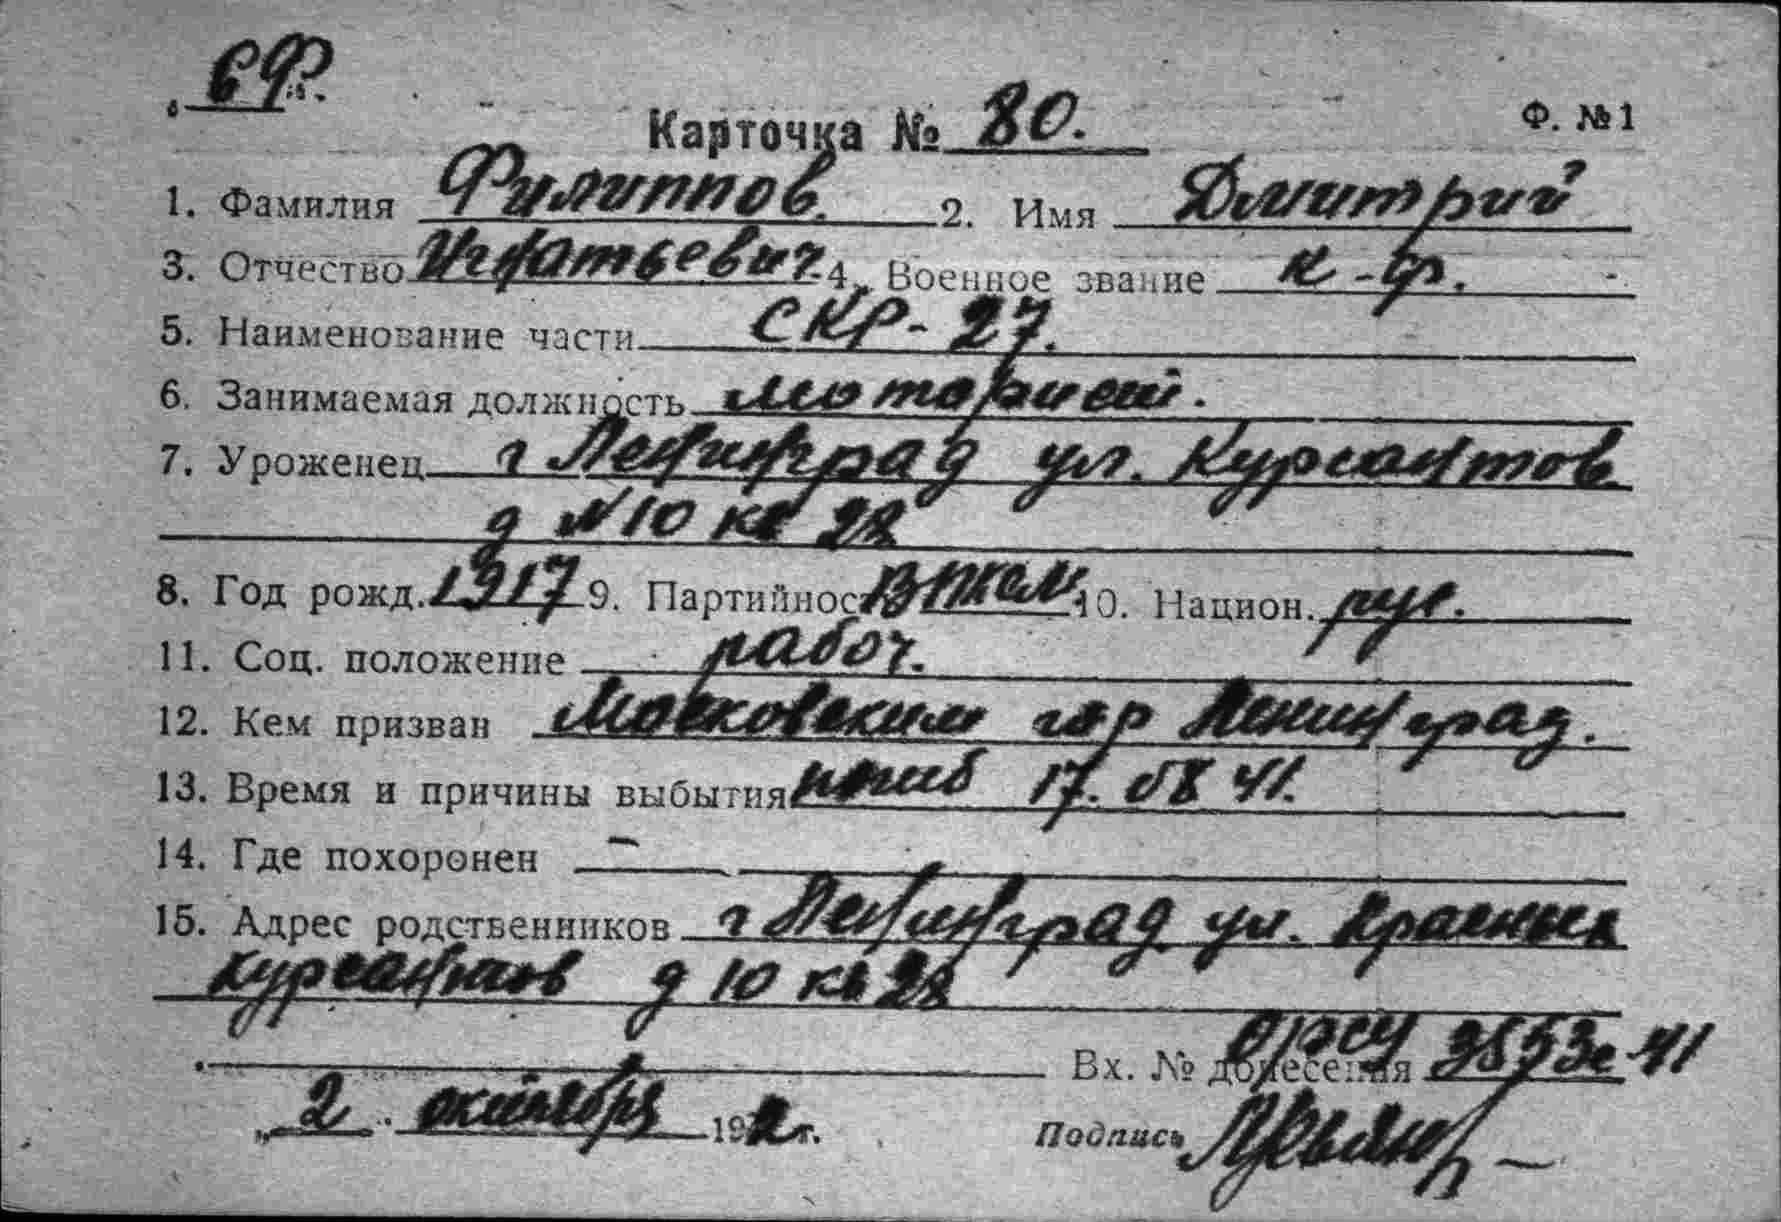 6 Ф.
Карточка № 80. Ф. №1
1. Фамилия Филиппов. 2. Имя Дмитрий
3. Отчество Игнатьевич. 4. Военное звание к-ф.
5. Наименование части СКР-27.
6. Занимаемая должность моторист.
7. Уроженец г Ленинград ул. Курсантов
д №10 кв 28
8. Год рожд. 1917 9. Партийность ВЛКСМ 10. Национ. рус.
11. Соц. положение рабоч.
12. Кем призван Московским гор Ленинград.
13. Время и причины выбытия погиб 17. 08 41.
14. Где похоронен —
15. Адрес родственников г Ленинград ул. Красных
Курсантов д 10 кв 28
Вх. № донесения 41
„2" октября 19 г. Подпись